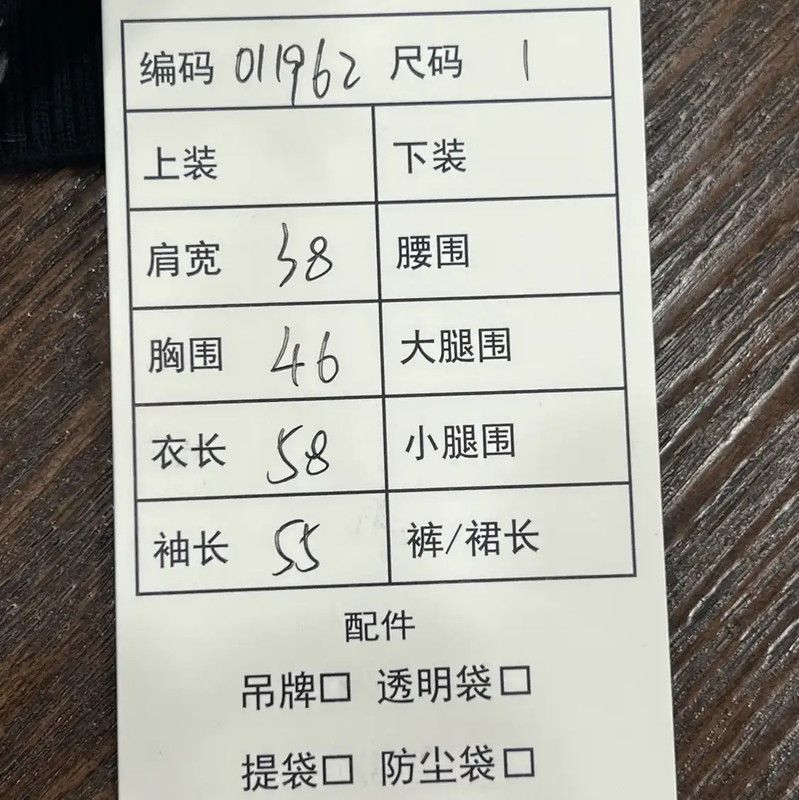 编码 011962 尺码 1
上装 下装
肩宽 38 腰围
胸围 46 大腿围
衣长 58 小腿围
袖长 55 裤/裙长
配件
吊牌□ 透明袋□
提袋□ 防尘袋□